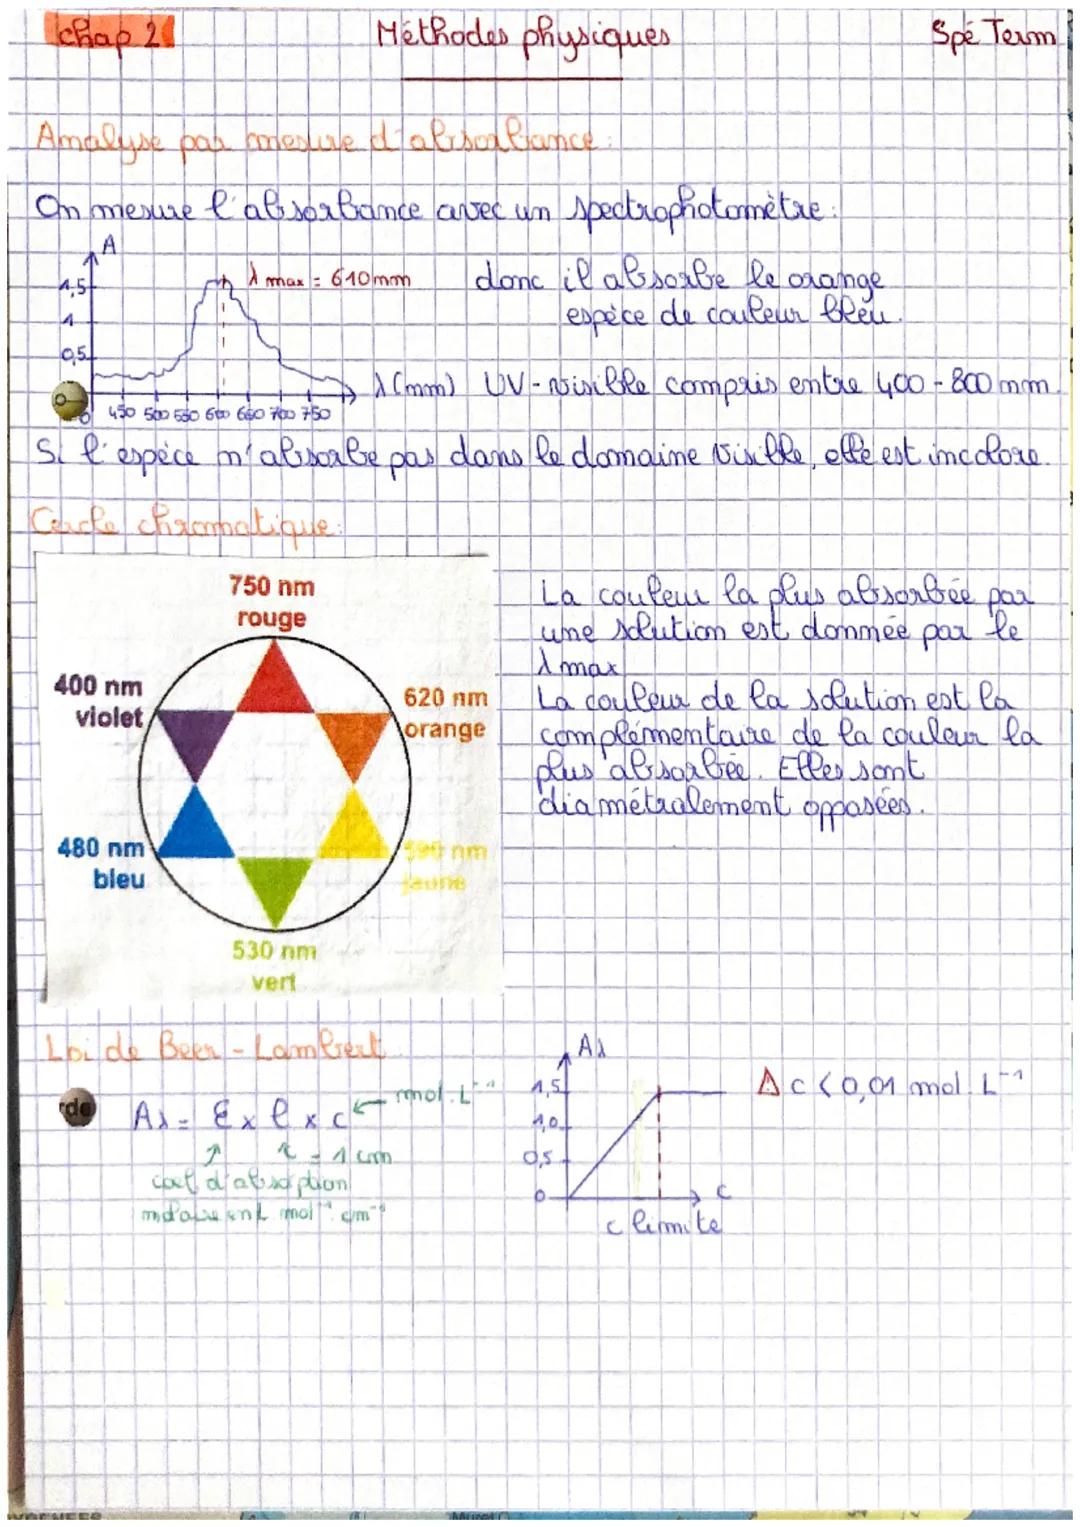 chap 2
Méthodes physiques
Spé Term
Analyse par mesure d'absorbance:
On mesure l'absorbance avec un spectrophotomètre:
A
1,5
1
0,5
0
λ max = 610 nm
450 500 550 600 650 700 750
λ (nm)
donc il absorbe le orange
espèce de couleur bleu.
UV-visible compris entre 400-800 nm.
Si l'espèce n'absorbe pas dans le domaine visible, elle est incolore.
Cercle chromatique:
750 nm
rouge
400 nm
violet
620 nm
orange
480 nm
bleu
590 nm
jaune
530 nm
vert
La couleur la plus absorbée par
une solution est donnée par le
λ max
La couleur de la solution est la
complémentaire de la couleur la
plus absorbée. Elles sont
diamétralement opposées.
Loi de Beer-Lambert
Aλ = ε x l x c ← mol.L⁻¹
= 1 cm
coef d'absorption
molaire en L.mol⁻¹.cm⁻¹
Aλ
1,5
1,0
0,5
0
c
c limite
⚠ c < 0,01 mol.L⁻¹